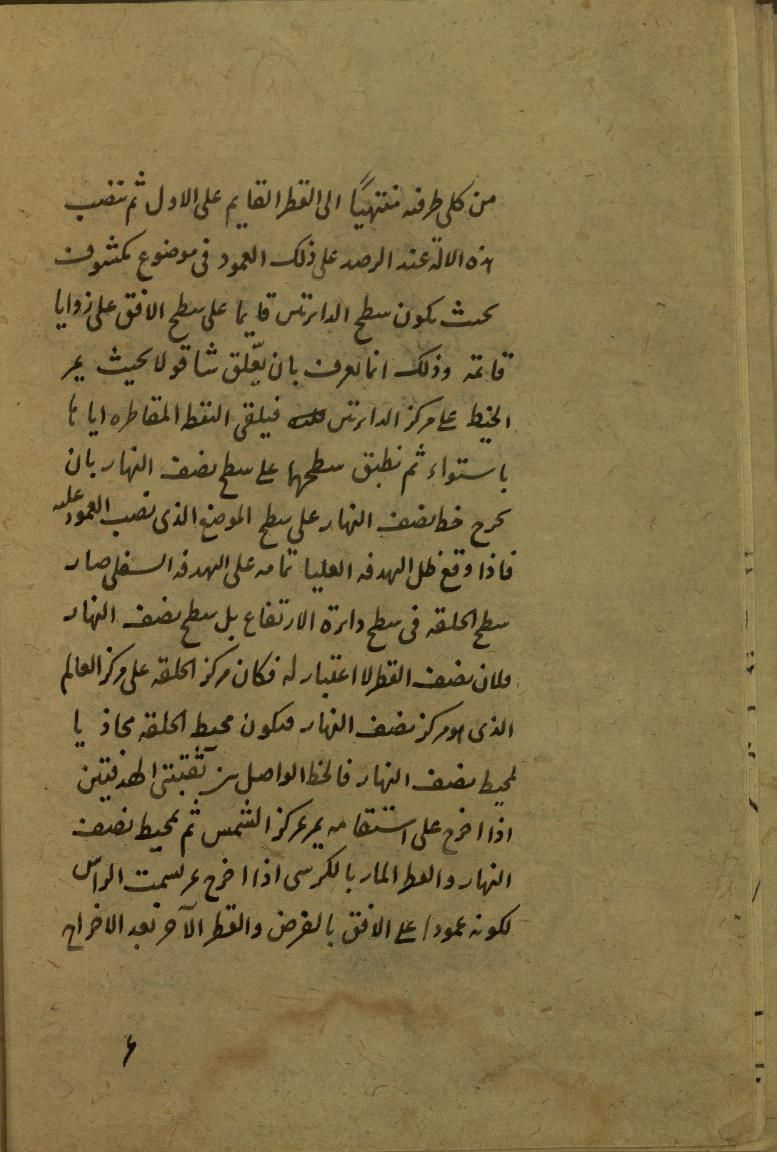 من كلى طرفيه منتهيًا الى القطر القايم على الاول ثم ننصب
هذه الالة عند الرصد على ذلك العمود فى موضوع مكشوف
بحيث يكون سطح الدايرتين قايما على سطح الافق على زوايا
قائمة وذلك انما يعرف بان يعّلق شاقولا بحيث يمر
الخيط على مركز الدايرتين فيلقى النقط المقاطره اياها
باستواء ثم نطبق سطحها على سطح نصف النهار بان
يخرج خط نصف النهار على سطح الموضع الذى نصب العمود عليه
فاذا وقع ظل الهدفه العليا تمامه على الهدفه السفلى صار
سطح الحلقه فى سطح دايرة الارتفاع بل سطح نصف النهار
ولان نصف القطر لا اعتبار له فكان مركز الحلقه على مركز العالم
الذى هو مركز نصف النهار فيكون محيط الحلقه محاذيا
لمحيط نصف النهار فالخط الواصل بين ثقبتى الهدفتين
اذا اخرج على استقامه يمر بمركز الشمس ثم بمحيط نصف
النهار والقطر المار بالكرسى اذا اخرج يمر بسمت الراس
لكونه عمودا على الافق بالفرض والقطر الآخر بعد الاخراج